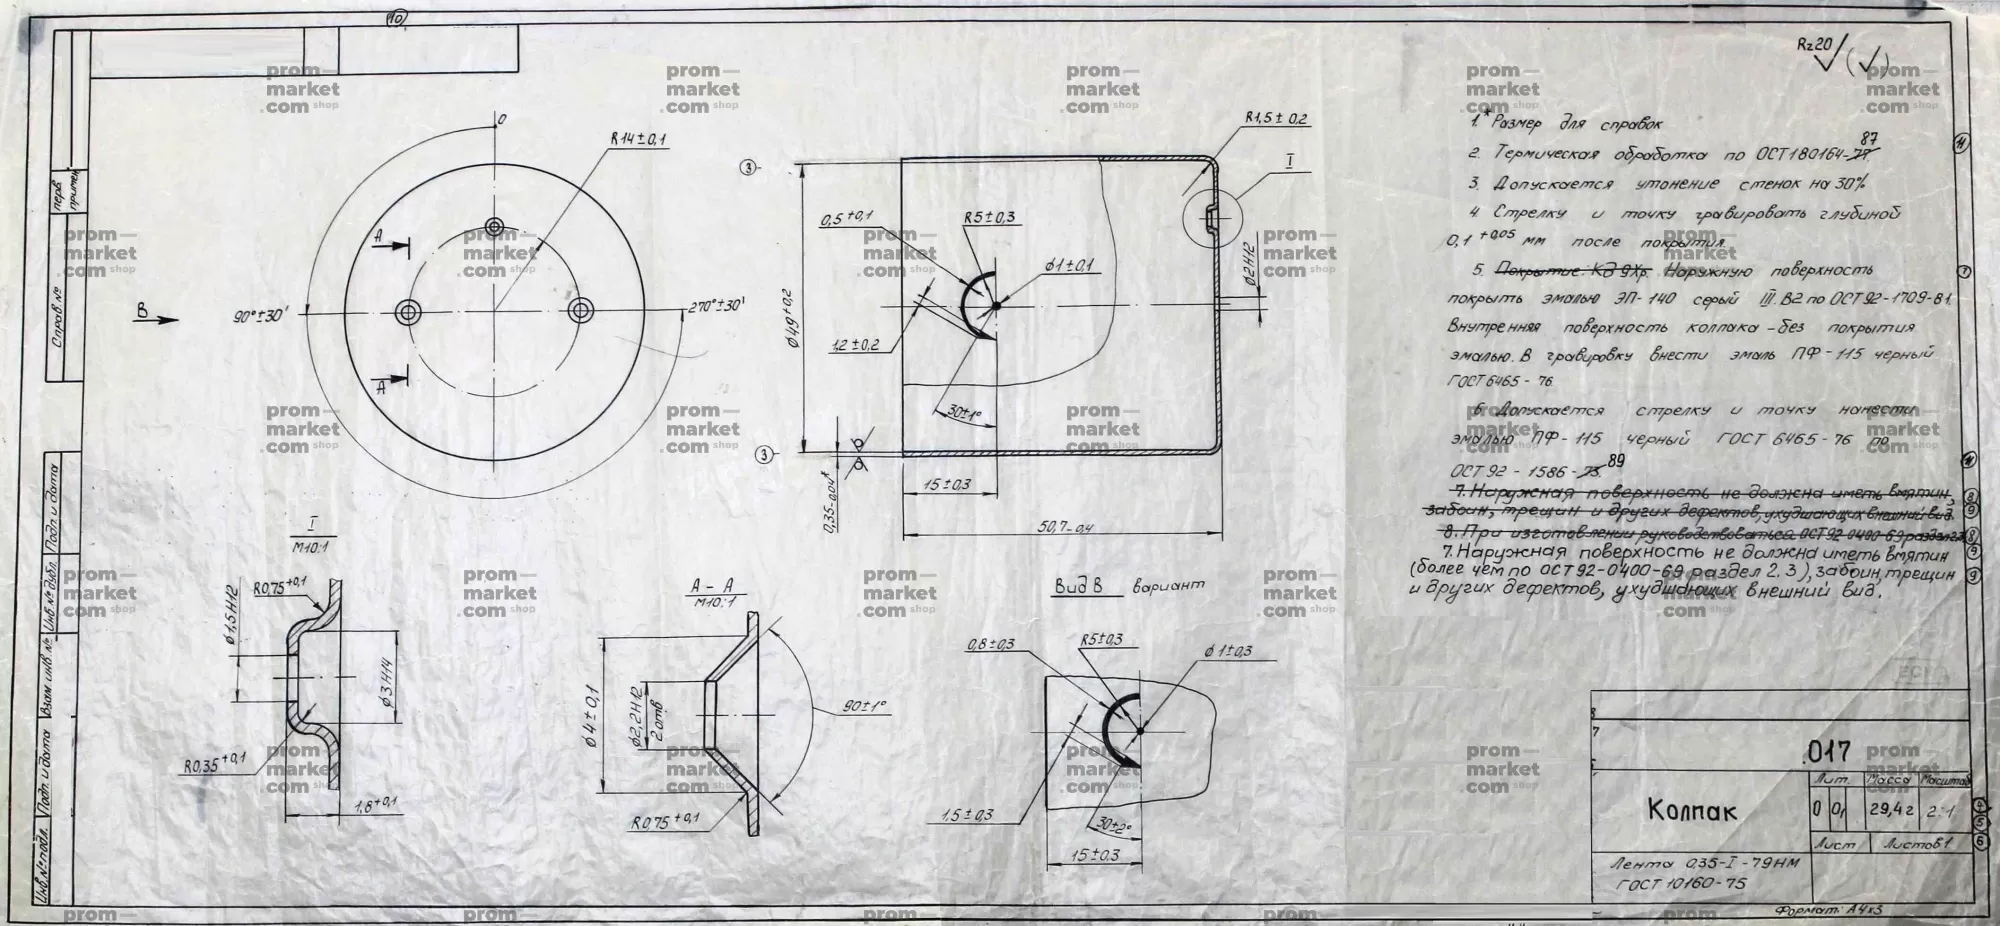 10
Rz20 (√)
1* Размер для справок
87
2. Термическая обработка по ОСТ180164-77.
3. Допускается утонение стенок на 30%
4 Стрелку и точку гравировать глубиной
0,1 +0,05 мм после покрытия.
5. Покрытие: Кд 9хр. Наружную поверхность
покрыть эмалью ЭП-140 серый III.В2 по ОСТ92-1709-81.
Внутренняя поверхность колпака - без покрытия
эмалью. В гравировку внести эмаль ПФ-115 черный
ГОСТ6465-76
6. Допускается стрелку и точку нанести
эмалью ПФ-115 черный ГОСТ 6465-76 по
ОСТ92-1586-73 89
7. Наружная поверхность не должна иметь вмятин,
забоин, трещин и других дефектов, ухудшающих внешний вид.
8. При изготовлении руководствоваться ОСТ92-0400-69 раздел 2.3
7. Наружная поверхность не должна иметь вмятин
(более чем по ОСТ92-0400-69 раздел 2.3), забоин, трещин
и других дефектов, ухудшающих внешний вид.
0
R14±0,1
А
А
В
90°±30'
270°±30'
3
3
R1,5±0,2
I
0,5+0,1
R5±0,3
ø1±0,1
ø49+0,2
1,2±0,2
ø2Н12
30±1°
15±0,3
0,35-0,04*
50,7-0,4
I
М10:1
R0,75+0,1
ø1,5Н12
ø3Н14
R0,35+0,1
1,8+0,1
А-А
М10:1
ø4±0,1
ø2,2Н12
2 отв.
90±1°
R0,75+0,1
Вид В вариант
0,8±0,3
R5±0,3
ø1±0,3
1,5±0,3
30±2°
15±0,3
Перв. примен.
Справ. №
Подп. и дата
Инв. № дубл.
Взам. инв. №
Подп. и дата
Инв. № подл.
8
7
.017
Колпак
Лит. Масса Масштаб
О О1 29,4г 2:1
Лист Листов 1
Лента 0,35-I-79НМ
ГОСТ 10160-75
Формат: А4х3
11
7
11
8
9
8
9
9
4
5
6
prom—
market
.com shop